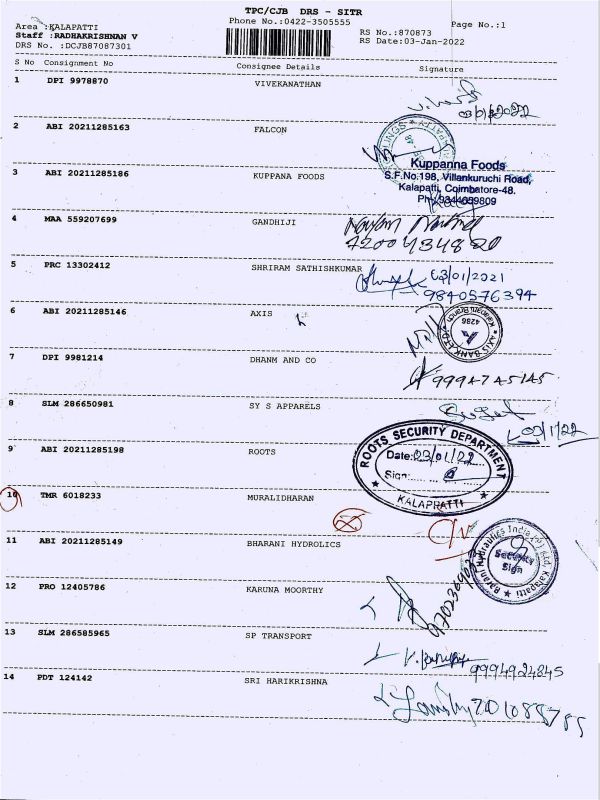 TPC/CJB DRS - SITR
Area :KALAPATTI
Phone No.:0422-3505555
Page No.:1
Staff :RADHAKRISHNAN V
RS No.:870873
DRS No. :DCJB87087301
RS Date:03-Jan-2022
S No Consignment No Consignee Details Signature
1 DPI 9978870 VIVEKANATHAN
03/01/2022
2 ABI 20211285163 FALCON
3 ABI 20211285186 KUPPANA FOODS
Kuppanna Foods
S.F.No:198, Villankuruchi Road,
Kalapatti, Coimbatore-48.
Ph: 9344059809
4 MAA 559207699 GANDHIJI
5 PRC 13302412 SHRIRAM SATHISHKUMAR
03/01/2021
9840576394
6 ABI 20211285146 AXIS
AXIS BANK LTD
4286
7 DPI 9981214 DHANM AND CO
8 SLM 286650981 SY S APPARELS
03/1/22
9 ABI 20211285198 ROOTS
ROOTS SECURITY DEPARTMENT
Date: 03/01/22
Sign:
KALAPRATTI
10 TMR 6018233 MURALIDHARAN
11 ABI 20211285149 BHARANI HYDROLICS
Barani Hydraulics India (P) Ltd, Kalapatti
Security
Sign
12 PRO 12405786 KARUNA MOORTHY
13 SLM 286585965 SP TRANSPORT
9994924845
14 PDT 124142 SRI HARIKRISHNA